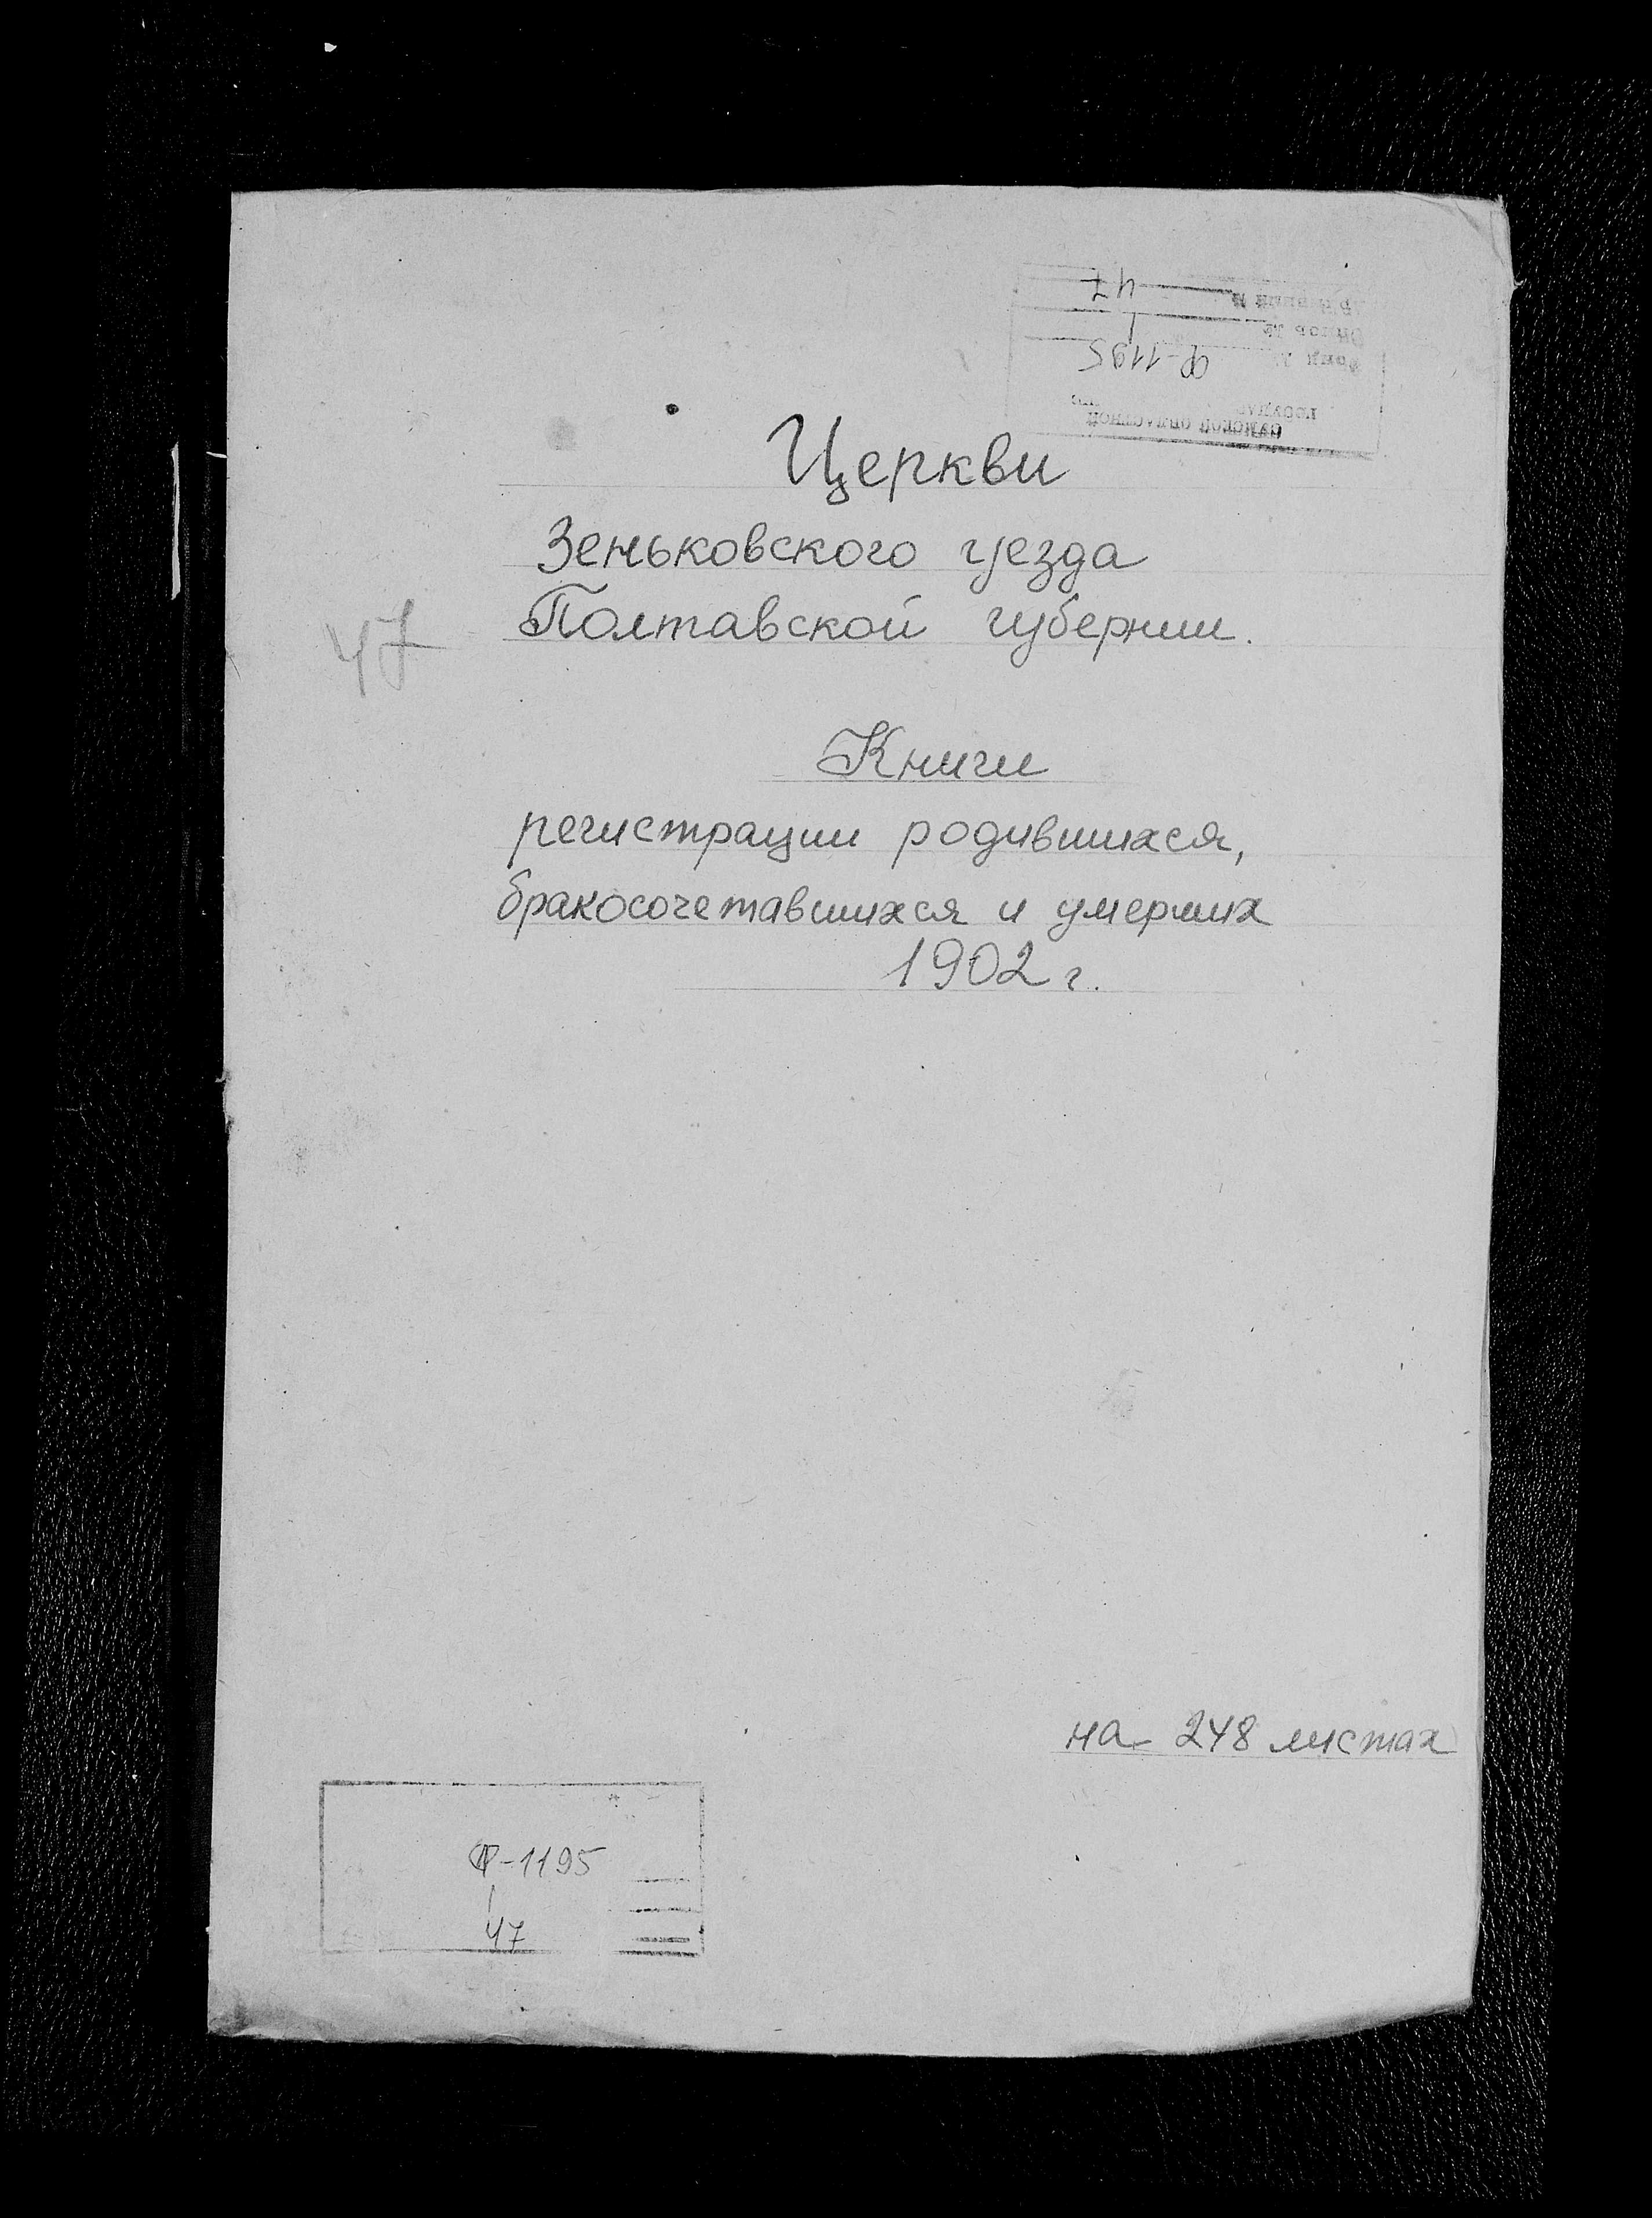 СУМСКОЙ ОБЛАСТНОЙ
Фонд № Ф-1195
Опись № 1
47
Церкви
Зеньковского уезда
Полтавской губернии.
47
Книги
регистрации родившихся,
бракосочетавшихся и умерших
1902 г.
на 248 листах
Ф-1195
1
47